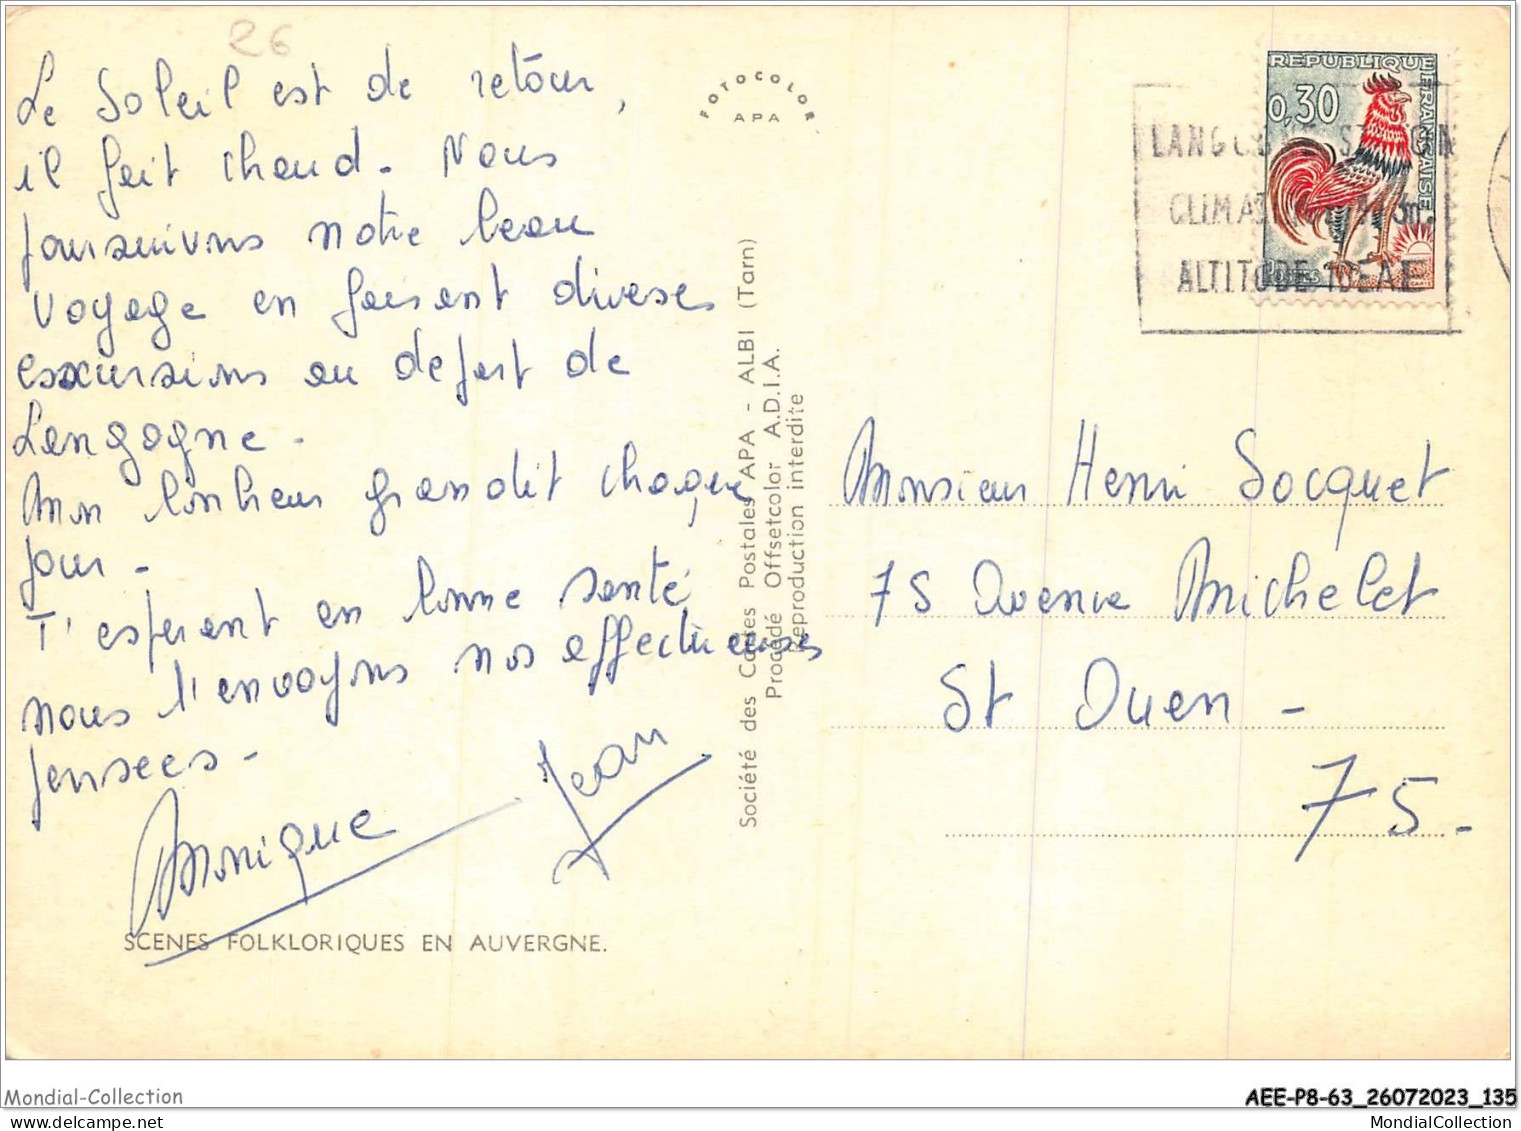 R6
Le Soleil est de retour,
il fait chaud. Nous
poursuivons notre beau
voyage en faisant diverses
excursions au départ de
Langogne -
Mon bonheur grandit chaque
jour -
T'espérant en bonne santé
nous t'envoyons nos affectueuses
pensées -
Monique
Jean
SCENES FOLKLORIQUES EN AUVERGNE.
FOTOCOLOR
APA
Société des Cartes Postales APA - ALBI (Tarn)
Procédé Offsetcolor A.D.I.A.
Reproduction interdite
REPUBLIQUE FRANÇAISE
0,30
ALTITUDE IDEALE
Monsieur Henri Socquet
75 Avenue Michelet
St Ouen -
75 -
Mondial-Collection
AEE-P8-63_26072023_135
MondialCollection